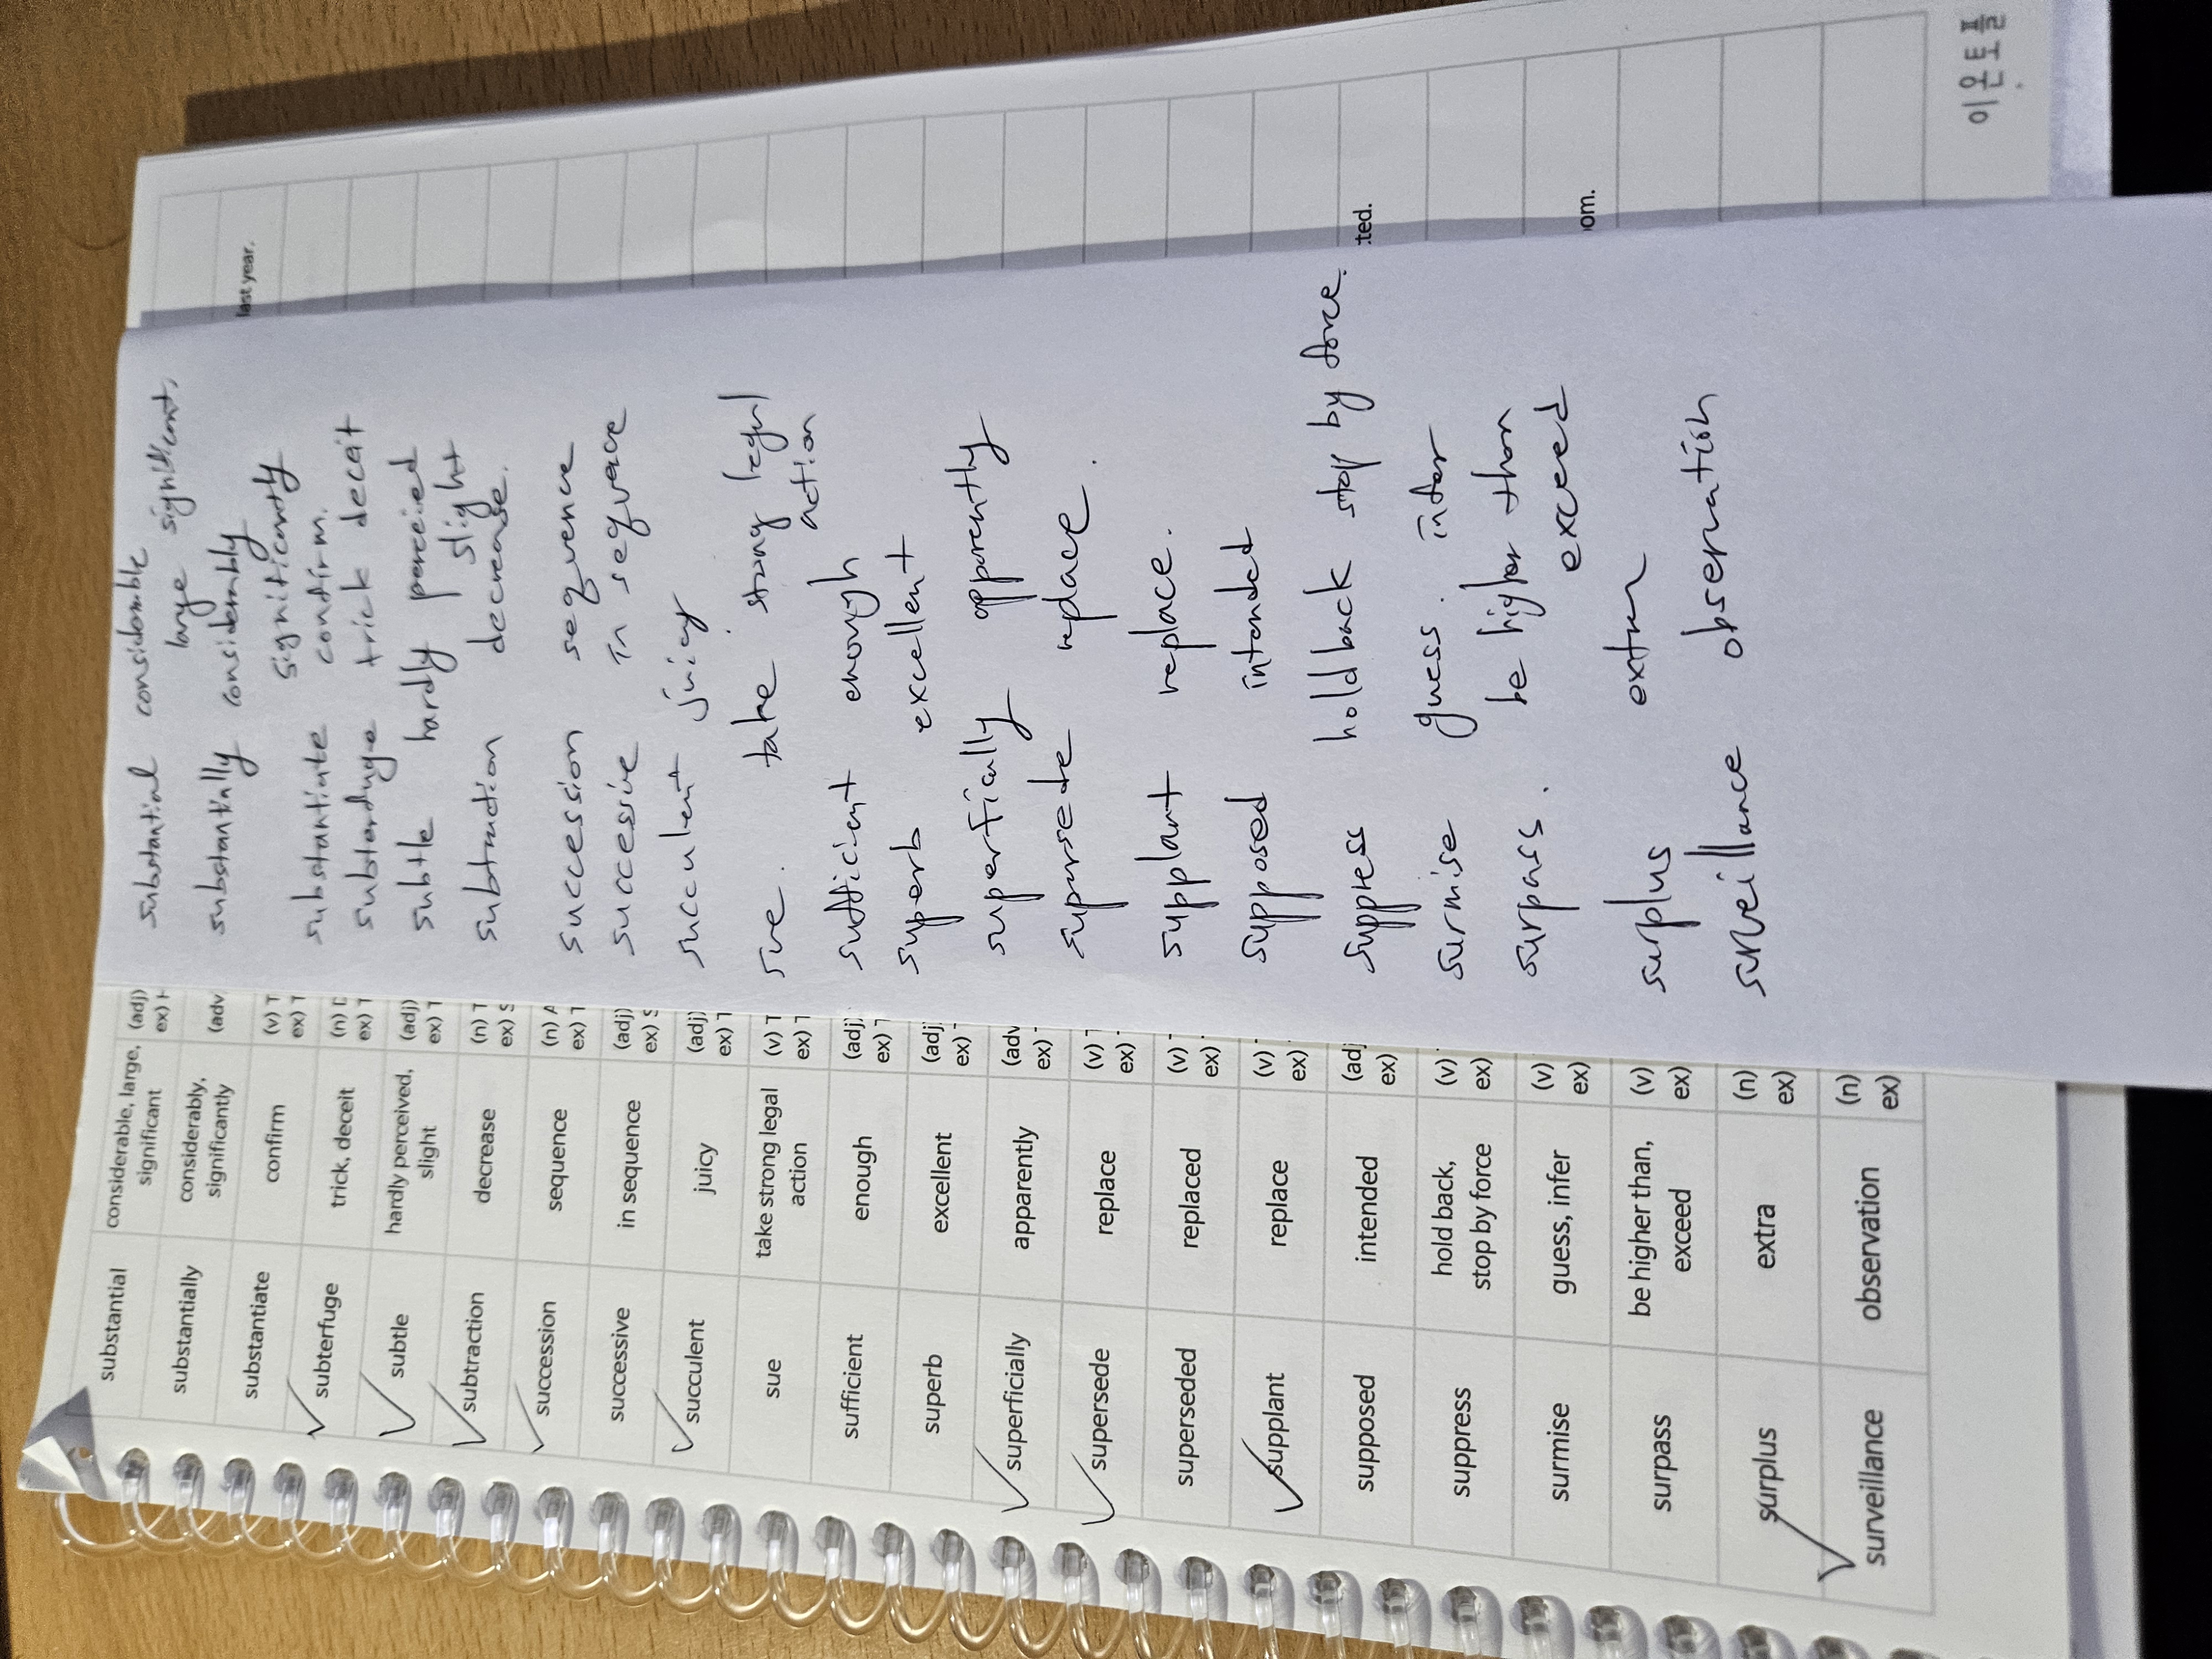 substantial
considerable, large,
significant
(adj)
ex) H
substantially
considerably,
significantly
(adv
substantiate
confirm
(v) T
ex) T
subterfuge
trick, deceit
(n) D
ex) T
subtle
hardly perceived,
slight
(adj)
ex) T
subtraction
decrease
(n) T
ex) S
succession
sequence
(n) A
ex) T
successive
in sequence
(adj)
ex) S
succulent
juicy
(adj)
ex) T
sue
take strong legal
action
(v) T
ex) T
sufficient
enough
(adj)
ex)
superb
excellent
(adj
ex)
superficially
apparently
(adv
ex)
supersede
replace
(v)
ex)
superseded
replaced
(v)
ex)
supplant
replace
(v)
ex)
supposed
intended
(ad
ex)
suppress
hold back,
stop by force
(v)
ex)
surmise
guess, infer
(v)
ex)
surpass
be higher than,
exceed
(v)
ex)
surplus
extra
(n)
ex)
surveillance
observation
(n)
ex)
substantial considerable
large significant,
substantally considerably
significantly
substantiate confirm.
subterduge trick deceit
subtle hardly perceied
slight
subtraction decrease.
succession sequence
successive in sequence
succulent juicy
sue. take strong legal
action
sufficient enough
superb excellent
superfically apparently
supersede replace.
supplant replace.
supposed intended
suppress hold back stop by force.
surmise guess. infer
surpass. be higher than
exceed
surplus extra
surveillance observation
last year.
ted.
om.
이온토플